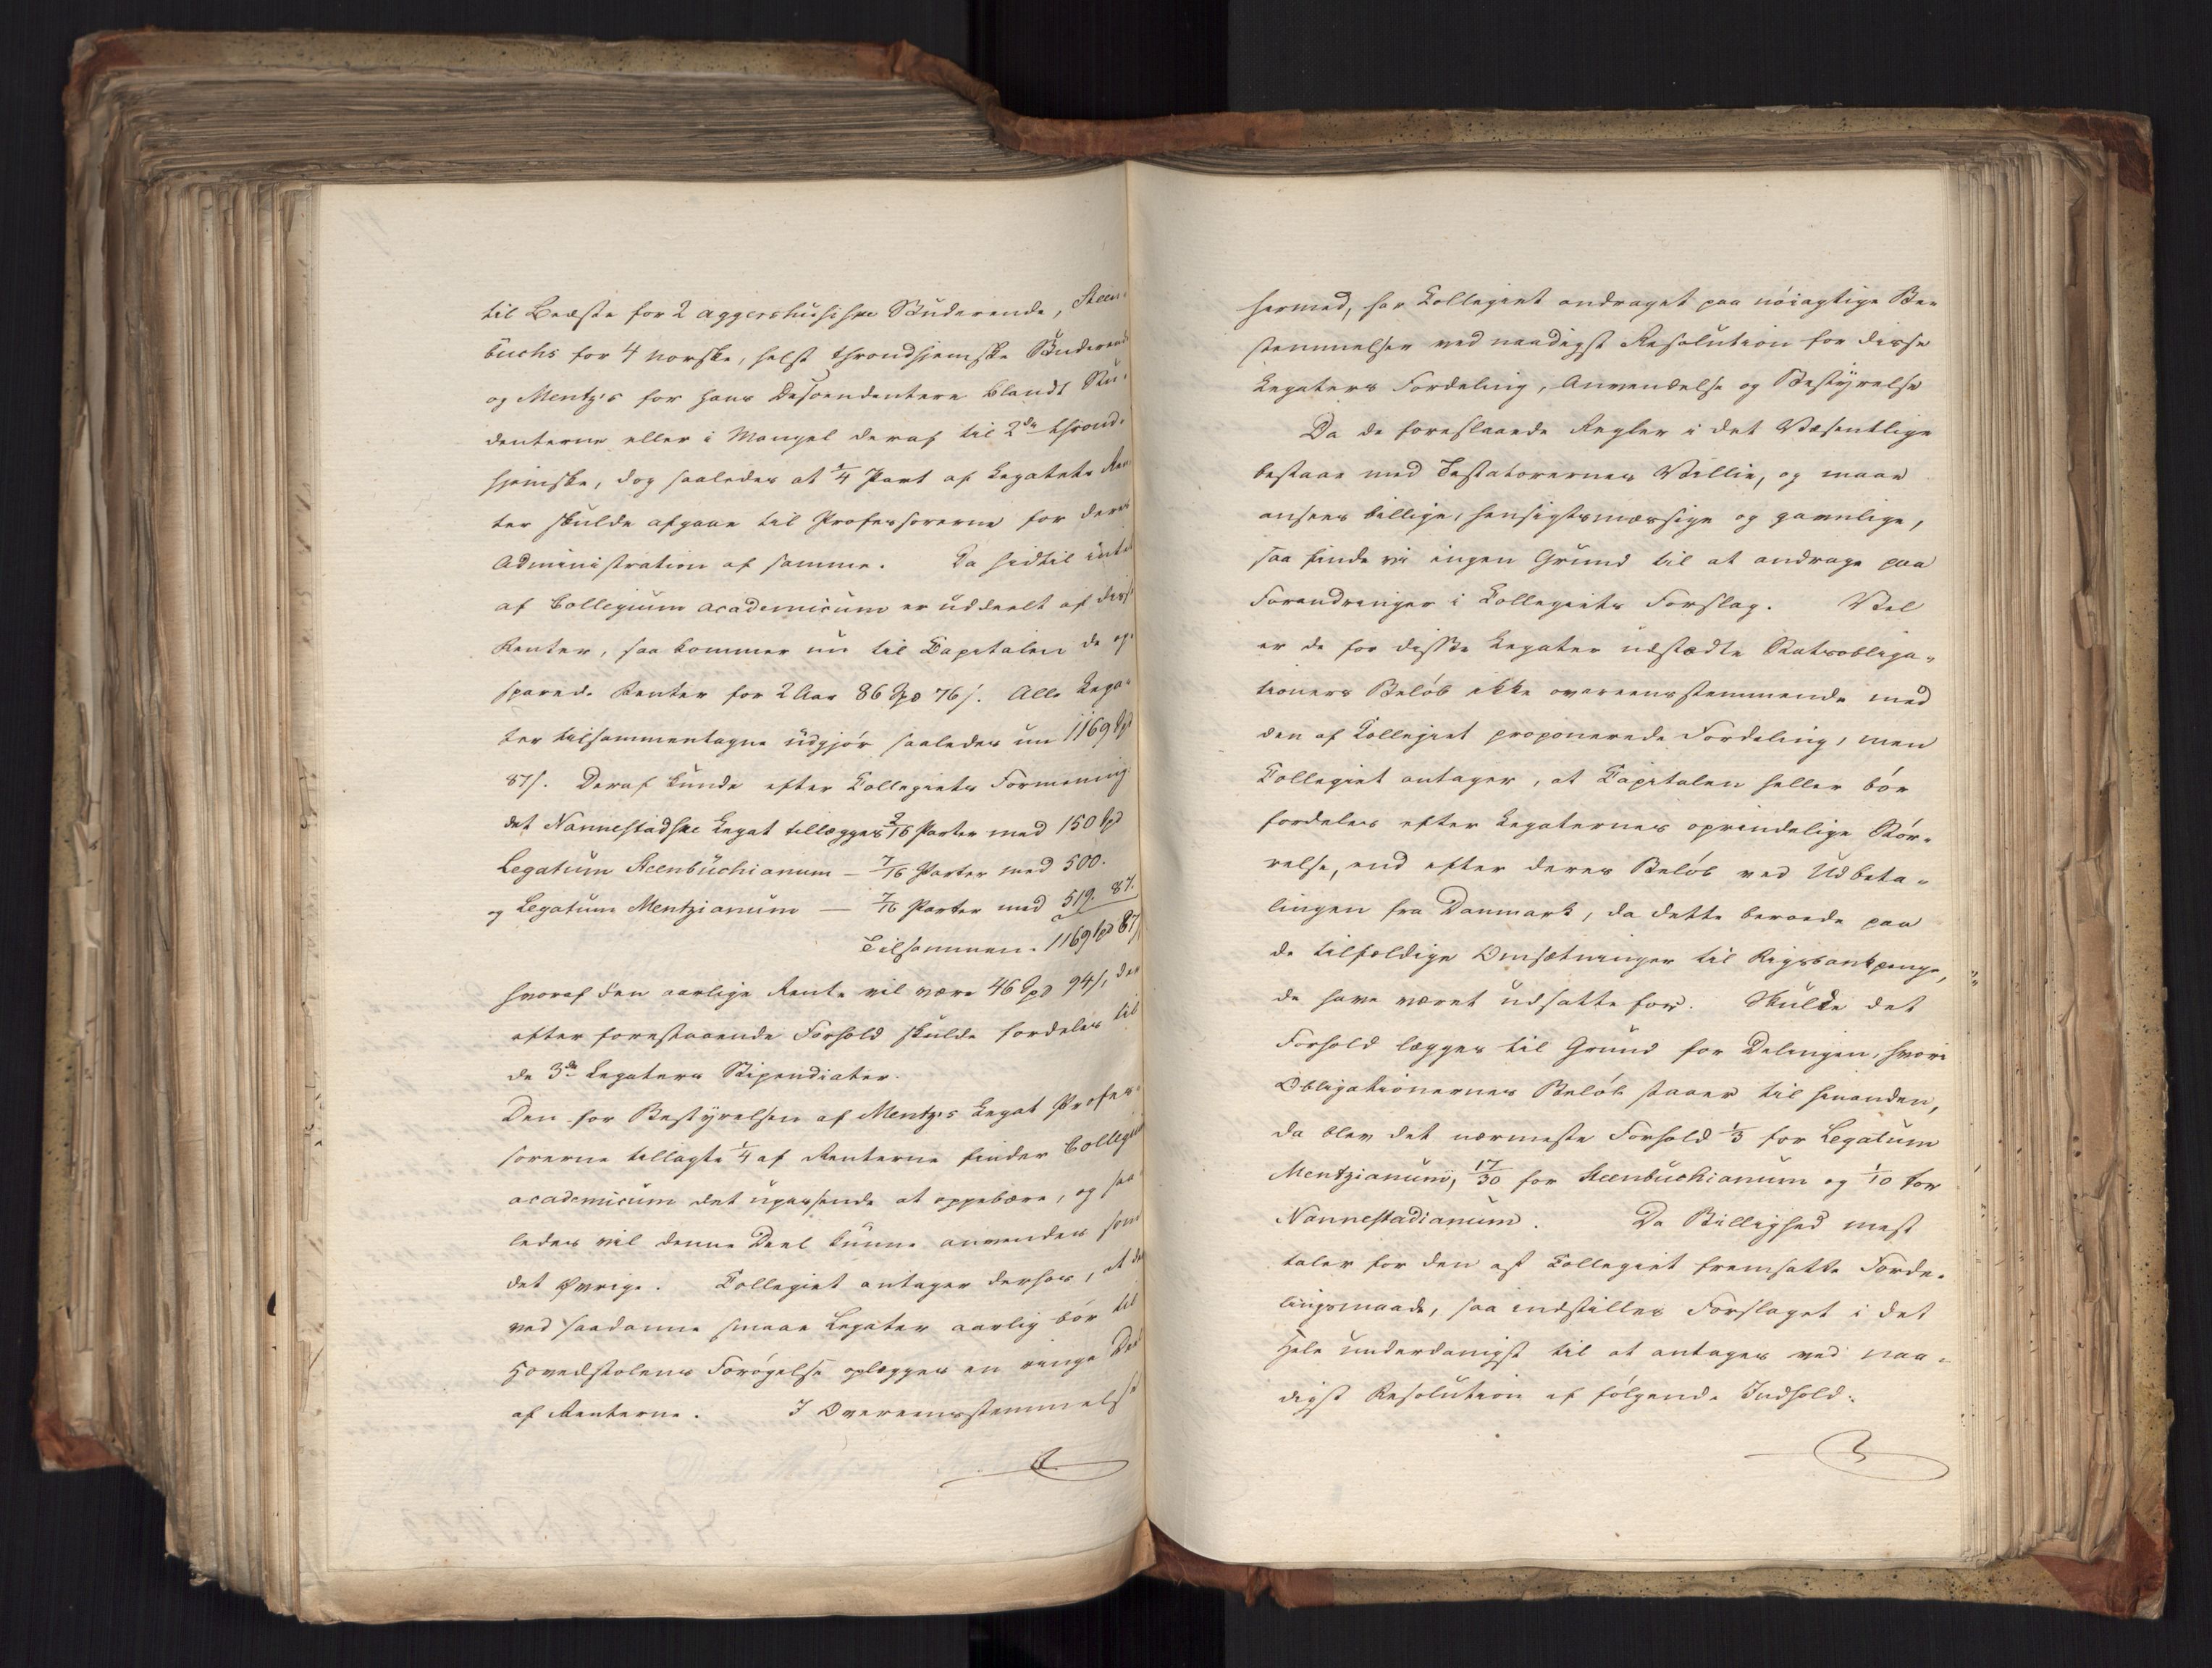 til Bedste for 2 aggershusiske Studerende, Steen-
buchs for 4 norske, helst throndhjemske Studerende
og Mentz's for hans Descendentere blandt Stu-
denterne eller i Mangel deraf til 2de thrond-
hjemske, dog saaledes at 1/4 Part af Legatets Ren-
ter skulde afgaae til Professorerne for deres
Administration af samme. Da hidtil intet
af Collegium academicum er uddeelt af disse
Renter, saa kommer nu til Capitalen de op-
sparede Renter for 2 Aar 86 Spd 76 s. Alle Lega-
ter tilsammentagne udgjør saaledes nu 1169 Spd
87 s. Deraf kunde efter Collegiets Formening
det Nannestadske Legat tillægges 2/16 Parter med 150 Spd
Legatum Steenbuchianum — 7/16 Parter med 500.
og Legatum Mentzianum — 7/16 Parter med 519. 87.
Tilsammen. 1169 Spd 87 s
hvoraf den aarlige Rente vil være 46 Spd 94 s, der
efter forestaaende Forhold skulde fordeles til
de 3de Legaters Stipendiater.
Den for Bestyrelsen af Mentz's Legat Profes-
sorerne tillagte 1/4 af Renterne finder Collegium
academicum det upassende at oppebære, og saa-
ledes vil denne Deel kunne anvendes som
det Øvrige. Collegiet antager derhos, at der
ved saadanne smaae Legater aarlig bør til
Hovedstolens Forøgelse oplægges en ringe Deel
af Renterne. I Overeensstemmelse
hermed, har Collegiet andraget paa nøiagtige Be-
stemmelser ved naadigst Resolution for disse
Legaters Fordeling, Anvendelse og Bestyrelse
Da de foreslaaede Regler i det Væsentlige
bestaae med Testatorernes Villie, og maae
ansees billige, hensigtsmæssige og gavnlige,
saa finde vi ingen Grund til at andrage paa
Forandringer i Collegiets Forslag. Vel
er de for disse Legater udstædte Statsobliga-
tioners Beløb ikke overeensstemmende med
den af Collegiet proponerede Fordeling, men
Collegiet antager, at Capitalen heller bør
fordeles efter Legaternes oprindelige Stør-
relse, end efter deres Beløb ved Udbeta-
lingen fra Danmark, da dette beroede paa
de tilfældige Omsætninger til Rigsbankpenge,
de have været udsatte for. Skulde det
Forhold lægges til Grund for Delingen, hvori
Obligationernes Beløb staaer til hinanden,
da blev det nærmeste Forhold 1/3 for Legatum
Mentzianum, 17/30 for Steenbuchianum og 1/10 for
Nannestadianum. Da Billighed mest
taler for den af Collegiet fremsatte Forde-
lingsmaade, saa indstilles Forslaget i det
Hele underdanigst til at antages ved naa-
digst Resolution af følgende Indhold: